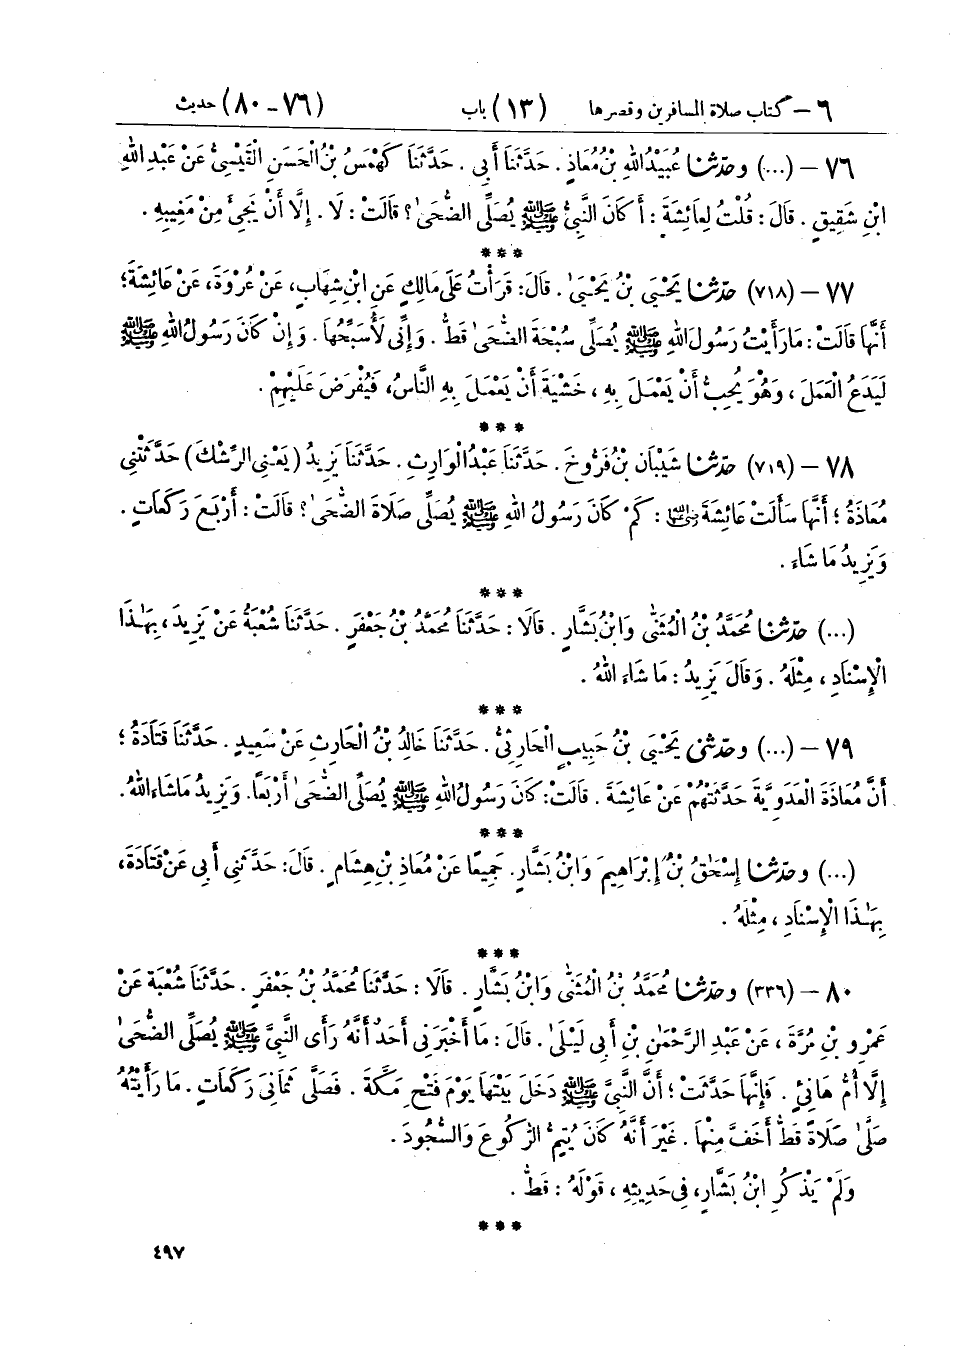 ٦ – كتاب صلاة المسافرين وقصرها (١٣) باب (٧٦ - ٨٠) حديث
٧٦ – (...) وحدّثنا عُبَيْدُ اللهِ بْنُ مُعَاذٍ . حَدَّثَنَا أَبِي . حَدَّثَنَا كَهْمَسُ بْنُ الْحَسَنِ الْقَيْسِيُّ عَنْ عَبْدِ اللهِ
ابْنِ شَقِيقٍ . قَالَ : قُلْتُ لِعَائِشَةَ : أَكَانَ النَّبِيُّ ﷺ يُصَلِّي الضُّحَىٰ ؟ قَالَتْ : لَا . إِلَّا أَنْ يَجِيءَ مِنْ مَغِيبِهِ .
* * *
٧٧ – (٧١٨) حدّثنا يَحْيَىٰ بْنُ يَحْيَىٰ . قَالَ : قَرَأْتُ عَلَى مَالِكٍ عَنِ ابْنِ شِهَابٍ، عَنْ عُرْوَةَ، عَنْ عَائِشَةَ ؛
أَنَّهَا قَالَتْ : مَا رَأَيْتُ رَسُولَ اللهِ ﷺ يُصَلِّي سُبْحَةَ الضُّحَىٰ قَطُّ . وَإِنِّي لَأُسَبِّحُهَا . وَإِنْ كَانَ رَسُولُ اللهِ ﷺ
لَيَدَعُ الْعَمَلَ ، وَهُوَ يُحِبُّ أَنْ يَعْمَلَ بِهِ ، خَشْيَةَ أَنْ يَعْمَلَ بِهِ النَّاسُ، فَيُفْرَضَ عَلَيْهِمْ .
* * *
٧٨ – (٧١٩) حدّثنا شَيْبَانُ بْنُ فَرُّوخَ . حَدَّثَنَا عَبْدُ الْوَارِثِ . حَدَّثَنَا يَزِيدُ ( يَعْنِي الرِّشْكَ ) حَدَّثَتْنِي
مُعَاذَةُ ؛ أَنَّهَا سَأَلَتْ عَائِشَةَ رضي الله عنها : كَمْ كَانَ رَسُولُ اللهِ ﷺ يُصَلِّي صَلَاةَ الضُّحَىٰ ؟ قَالَتْ : أَرْبَعَ رَكَعَاتٍ .
وَيَزِيدُ مَا شَاءَ .
* * *
(...) حدّثنا مُحَمَّدُ بْنُ الْمُثَنَّىٰ وَابْنُ بَشَّارٍ . قَالَا : حَدَّثَنَا مُحَمَّدُ بْنُ جَعْفَرٍ . حَدَّثَنَا شُعْبَةُ عَنْ يَزِيدَ ، بِهَـٰذَا
الْإِسْنَادِ ، مِثْلَهُ . وَقَالَ يَزِيدُ : مَا شَاءَ اللهُ .
* * *
٧٩ – (...) وحدّثني يَحْيَىٰ بْنُ حَبِيبٍ الْحَارِثِيُّ . حَدَّثَنَا خَالِدُ بْنُ الْحَارِثِ عَنْ سَعِيدٍ . حَدَّثَنَا قَتَادَةُ ؛
أَنَّ مُعَاذَةَ الْعَدَوِيَّةَ حَدَّثَتْهُمْ عَنْ عَائِشَةَ . قَالَتْ : كَانَ رَسُولُ اللهِ ﷺ يُصَلِّي الضُّحَىٰ أَرْبَعًا. وَيَزِيدُ مَا شَاءَ اللهُ .
* * *
(...) وحدّثنا إِسْحَٰقُ بْنُ إِبْرَاهِيمَ وَابْنُ بَشَّارٍ. جَمِيعًا عَنْ مُعَاذِ بْنِ هِشَامٍ . قَالَ : حَدَّثَنِي أَبِي عَنْ قَتَادَةَ،
بِهَـٰذَا الْإِسْنَادِ ، مِثْلَهُ .
* * *
٨٠ – (٣٣٦) وحدّثنا مُحَمَّدُ بْنُ الْمُثَنَّىٰ وَابْنُ بَشَّارٍ . قَالَا : حَدَّثَنَا مُحَمَّدُ بْنُ جَعْفَرٍ . حَدَّثَنَا شُعْبَةُ عَنْ
عَمْرِو بْنِ مُرَّةَ ، عَنْ عَبْدِ الرَّحْمَٰنِ بْنِ أَبِي لَيْلَىٰ . قَالَ : مَا أَخْبَرَنِي أَحَدٌ أَنَّهُ رَأَى النَّبِيَّ ﷺ يُصَلِّي الضُّحَىٰ
إِلَّا أُمُّ هَانِئٍ . فَإِنَّهَا حَدَّثَتْ ؛ أَنَّ النَّبِيَّ ﷺ دَخَلَ بَيْتَهَا يَوْمَ فَتْحِ مَكَّةَ . فَصَلَّى ثَمَانِيَ رَكَعَاتٍ . مَا رَأَيْتُهُ
صَلَّىٰ صَلَاةً قَطُّ أَخَفَّ مِنْهَا . غَيْرَ أَنَّهُ كَانَ يُتِمُّ الرُّكُوعَ وَالسُّجُودَ .
وَلَمْ يَذْكُرِ ابْنُ بَشَّارٍ، فِي حَدِيثِهِ ، قَوْلَهُ : قَطُّ .
* * *
٤٩٧